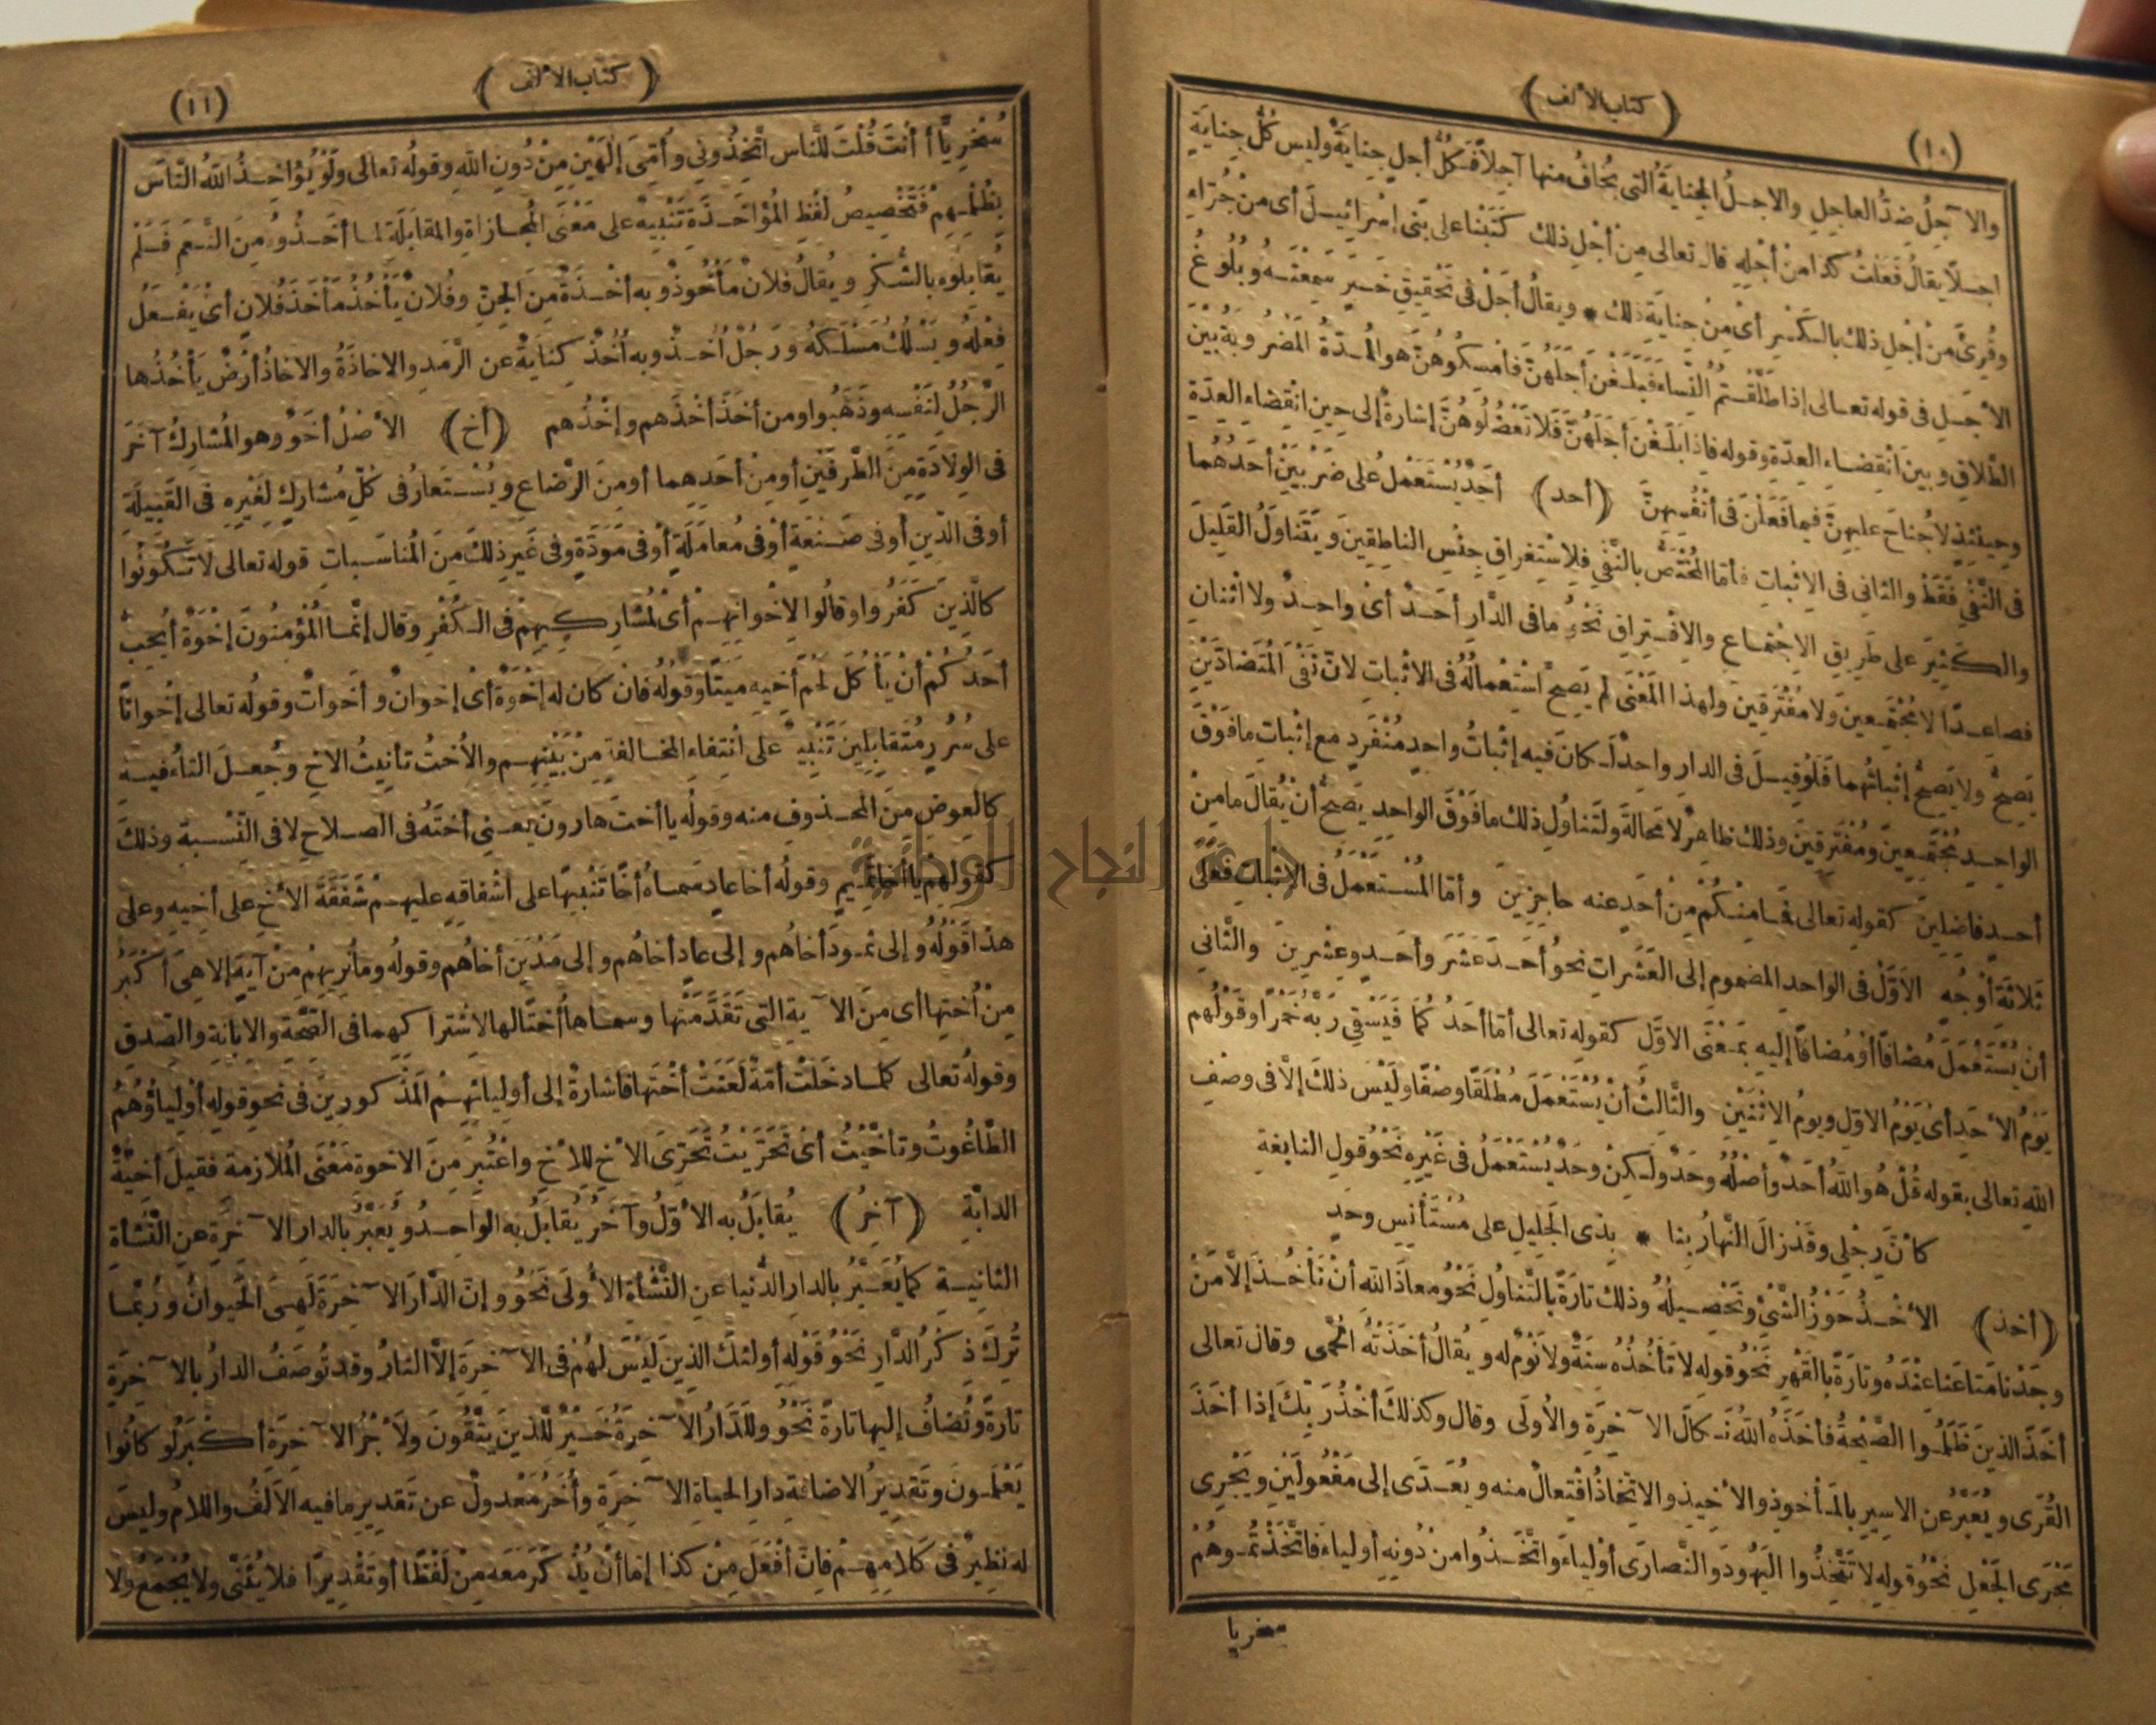 (كتاب الألف)
(١٠)
والآجِلُ ضدُّ العاجِلِ والاجلُ الجِنايَةُ التى يُخافُ منها آجِلاً فَكُلُّ أجلٍ جِنايَةٌ وليس كُلُّ جِنايَةٍ
اجلاً يقالُ فَعَلْتُ كذا منْ أجْلِهِ قال تعالى مِنْ أجْلِ ذلك كَتَبْنا على بَنِى إسْرائيلَ أى منْ جُرّاءِ
وقُرِئَ منْ إجْلِ ذلك بالكَسْرِ أىْ مِنْ جِنايَةِ ذلك * ويقالُ أجَلْ فى تَحْقِيقِ خَبَرٍ سَمِعْتَه وبُلُوغُ
الأجَلِ فى قوله تعالى إذا طَلَّقْتُمُ النِّساءَ فَبَلَغْنَ أجَلَهُنَّ فامْسِكُوهُنَّ هو المُدَّةُ المَضْرُوبَةُ بَيْنَ
الطَّلاقِ وبينَ انْقِضاءِ العِدَّةِ وقوله فاذا بَلَغْنَ أجَلَهُنَّ فَلا تَعْضُلُوهُنَّ إشارةٌ إلى حينِ انْقِضاءِ العِدَّةِ
وحِينَئِذٍ لا جُناحَ عليهِنَّ فيما فَعَلْنَ فى أنْفُسِهِنَّ (أحد) أحَدٌ يُسْتَعْمَلُ على ضَرْبَيْنِ أحَدُهُما
فى النَّفْىِ فَقَطْ والثانى فى الاثْباتِ فأمّا المُخْتَصُّ بالنَّفْىِ فلاسْتِغْراقِ جِنْسِ الناطِقِينَ ويَتَناوَلُ القَلِيلَ
والكَثِيرَ على طَرِيقِ الاجْتِماعِ والافْتِراقِ نحْوُ ما فى الدَّارِ أحَدٌ أىْ واحِدٌ ولا اثْنانِ
فصاعِدًا لا مُجْتَمِعينَ ولا مُفْتَرِقينَ ولهذا المَعْنَى لم يَصِحَّ اسْتِعْمالُهُ فى الاثْباتِ لانَّ نَفْىَ المُتَضادَّيْنِ
يَصِحُّ ولا يَصِحُّ إثْباتُهُما فَلَوْ قِيلَ فى الدارِ واحِدٌ لَكانَ فيه إثْباتُ واحِدٍ مُنْفَرِدٍ مع إثْباتِ ما فَوْقَ
الواحِدِ مُجْتَمِعينَ ومُفْتَرِقينَ وذلك ظاهِرٌ لا مَحالَةَ ولِتَناوُلِ ذلك ما فَوْقَ الواحِدِ يَصِحُّ أنْ يُقالَ ما منْ
أحدٍ فاضِلِينَ كقوله تعالى فما منْكُمْ مِنْ أحَدٍ عنه حاجِزِينَ وأمّا المُسْتَعْمَلُ فى الاثباتِ فَعَلَى
ثَلاثَةِ أوْجُهٍ الاوَّلُ فى الواحِدِ المضمومِ إلى العَشَراتِ نحوُ أحَدَ عَشَرَ وأحَدٍ وعِشْرِينَ والثَّانى
أنْ يُسْتَعْمَلَ مُضافًا أوْ مُضافًا إليهِ بِمَعْنَى الاوَّلِ كقولِه تعالى أمّا أحَدُكُما فَيَسْقِى رَبَّهُ خَمْرًا وقَوْلُهم
يَوْمُ الأحَدِ أىْ يَوْمُ الاوّلِ ويومُ الاثْنَيْنِ والثَّالِثُ أنْ يُسْتَعْمَلَ مُطْلَقًا وصْفًا ولَيْسَ ذلكَ إلَّا فى وصْفِ
اللهِ تعالى بقوله قُلْ هُوَ اللهُ أحَدٌ وأصْلُهُ وحَدٌ ولكِنْ وحَدٌ يُسْتَعْمَلُ فى غَيْرِهِ نَحْوُ قولِ النابغةِ
كأنَّ رَحْلِى وقَدْ زالَ النَّهارُ بِنا * بِذِى الجَلِيلِ على مُسْتَأْنِسٍ وحَدِ
(أخذ) الأخْذُ حَوْزُ الشَّئِ وتَحْصِيلُهُ وذلك تارَةً بالتَّناوُلِ نَحْوُ معاذَ الله أنْ نَأخُذَ إلَّا مَنْ
وجَدْنا مَتاعَنا عِنْدَهُ وتارَةً بالقَهْرِ نَحْوُ قوله لا تَأْخُذُهُ سِنَةٌ ولا نَوْمٌ له ويُقالُ أخَذَتْهُ الحُمَّى وقال تعالى
أخَذَ الذِينَ ظَلَمُوا الصَّيْحَةُ فأخَذَهُ اللهُ نَكالَ الآخِرَةِ والأُولَى وقال وكذلكَ أخْذُ رَبِّكَ إذا أخَذَ
القُرَى ويُعَبَّرُ عنِ الاسِيرِ بالمَأخوذِ والأخِيذِ والاتِّخاذُ افْتِعالٌ منه ويُعَدَّى إلى مَفْعُولَيْنِ ويَجْرِى
مَجْرَى الجَعْلِ نَحْوُ قولِهِ لا تَتَّخِذُوا اليَهُودَ والنَّصارَى أوْلِياءَ واتَّخَذُوا من دُونِهِ أولياءَ فاتَّخَذْتُمُوهُمْ
سخريا
(كتاب الألف)
(١١)
سُخْرِيًّا أأنتَ قُلْتَ للنَّاسِ اتَّخِذُونِى وأُمِّىَ إلَهَيْنِ مِنْ دُونِ اللهِ وقولُه تعالى ولَوْ يُؤاخِذُ اللهُ النَّاسَ
بِظُلْمِهِمْ فَتَخْصِيصُ لَفْظِ المُؤاخَذَةِ تَنْبِيهٌ على مَعْنَى المُجازاةِ والمقابَلَةِ لما أخَذُوهُ مِنَ النِّعَمِ فَلَمْ
يُقابِلُوه بالشُّكْرِ ويُقالُ فلانٌ مَأْخُوذٌ وبه أخْذَةٌ مِنَ الجِنِّ وفُلانٌ يَأْخُذُ مَأْخَذَ فُلانٍ أىْ يَفْعَلُ
فِعْلَهُ ويَسْلُكُ مَسْلَكَهُ ورَجُلٌ أُخُذٌ وبه أُخُذٌ كِنايَةٌ عن الرَّمَدِ والاخاذَةُ والاخاذُ أرْضٌ يَأخُذُها
الرَّجُلُ لِنَفْسِه وذَهَبُوا ومن أخَذَ أخْذَهم وإخْذَهم (أخ) الأصْلُ أخَوٌ وهو المُشارِكُ آخَرَ
فى الوِلادَةِ مِنَ الطَّرفَيْنِ أو منْ أحَدِهِما أو مِنَ الرَّضاعِ ويُسْتَعارُ فى كُلِّ مُشارِكٍ لِغَيْرِهِ فى القَبِيلَةِ
أو فى الدِّينِ أو فى صَنْعَةٍ أوْ فى مُعامَلَةٍ أوْ فى مَوَدَّةٍ وفى غَيرِ ذلكَ مِنَ المُناسَباتِ قوله تعالى لا تَكُونُوا
كالَّذِينَ كَفَرُوا وقالُوا لِاخْوانِهِمْ أىْ لمُشارِكِيهِمْ فى الكُفْرِ وقال إنَّما المُؤْمِنُونَ إخْوَةٌ أيُحِبُّ
أحَدُكُمْ أنْ يَأكُلَ لَحْمَ أخِيهِ مَيْتًا وقَوْلُهُ فانْ كان له إخْوَةٌ أىْ إخوانٌ وأخَواتٌ وقولُه تعالى إخْوانًا
على سُرُرٍ مُتَقابِلِينَ تَنْبِيهٌ على انْتِفاءِ المخالفةِ مِنْ بَيْنِهِم والأُختُ تأنِيثُ الاخِ وجُعِلَ التاءُ فيهِ
كالعِوَضِ منَ المحذوفِ منه وقولُه يا أختَ هارونَ يعنى أختَه فى الصلاحِ لا فى النِّسْبةِ وذلكَ
كقولِهِمْ يا أخا تَمِيمٍ وقولُه أخا عادٍ سماهُ أخًا تَنْبِيهًا على اشْفاقِهِ عليهِمْ شَفَقَةَ الأخِ على أخِيهِ وعلى
هذا قَوْلُهُ وإلى ثَمودَ أخاهُم وإلى عادٍ أخاهُم وإلى مَدْيَنَ أخاهُم وقولُه وما نُرِيهِمْ مِنْ آيَةٍ إلا هِىَ أكْبَرُ
مِنْ أُختِها أى مِنَ الآيةِ التى تَقَدَّمَتْها وسماها أُختًا لها لاشْتِراكهما فى الصِّحَّةِ والابانةِ والصِّدقِ
وقولُه تعالى كلما دخَلَتْ أمَّةٌ لَعَنَتْ أُخْتَها فاشارةٌ إلى أوليائِهِمُ المَذْكورِينَ فى نحوِ قولِه أوْلِياؤُهُمُ
الطّاغُوتُ وتأخَّيْتُ أىْ تَحَرَّيْتُ تَحَرِّىَ الأخِ للأخِ واعْتُبِرَ مِنَ الاخوةِ مَعْنَى المُلازمةِ فقيلَ أخِيَّةُ
الدابَّةِ (آخِرُ) يُقابَلُ به الأوَّلُ وآخَرُ يُقابَلُ به الواحِدُ ويُعَبَّرُ بالدارِ الآخِرَةِ عنِ النَّشْأةِ
الثانيةِ كما يُعَبَّرُ بالدارِ الدُّنيا عنِ النَّشْأةِ الأُولَى نَحْوُ وإنَّ الدَّارَ الآخِرَةَ لَهِىَ الحَيوانُ ورُبَّما
تُرِكَ ذِكْرُ الدَّارِ نَحْوُ قَوْلِهِ أولئكَ الذِينَ لَيْسَ لهُمْ فى الآخِرَةِ إلَّا النارُ وقد تُوصَفُ الدارُ بالآخِرَةِ
تارةً وتُضافُ إليها تارةً نَحْوُ وللَدَّارُ الآخِرَةُ خَيْرٌ للَّذِينَ يَتَّقُونَ ولأجْرُ الآخِرَةِ أكْبَرُ لو كانُوا
يَعْلَمُونَ وتَقدِيرُ الاضافةِ دارِ الحياةِ الآخِرَةِ وأُخَرُ مَعْدولٌ عن تَقديرِ ما فيه الالفُ واللامُ وليسَ
له نَظِيرٌ فى كَلامِهِمْ فانَّ أفْعَلَ مِنْ كذا إمّا أنْ يُذْكَرَ مَعَه مِنْ لَفْظًا أو تَقْدِيرًا فلا يُثَنَّى ولا يُجْمَعُ ولا
جامعة النجاح الوطنية